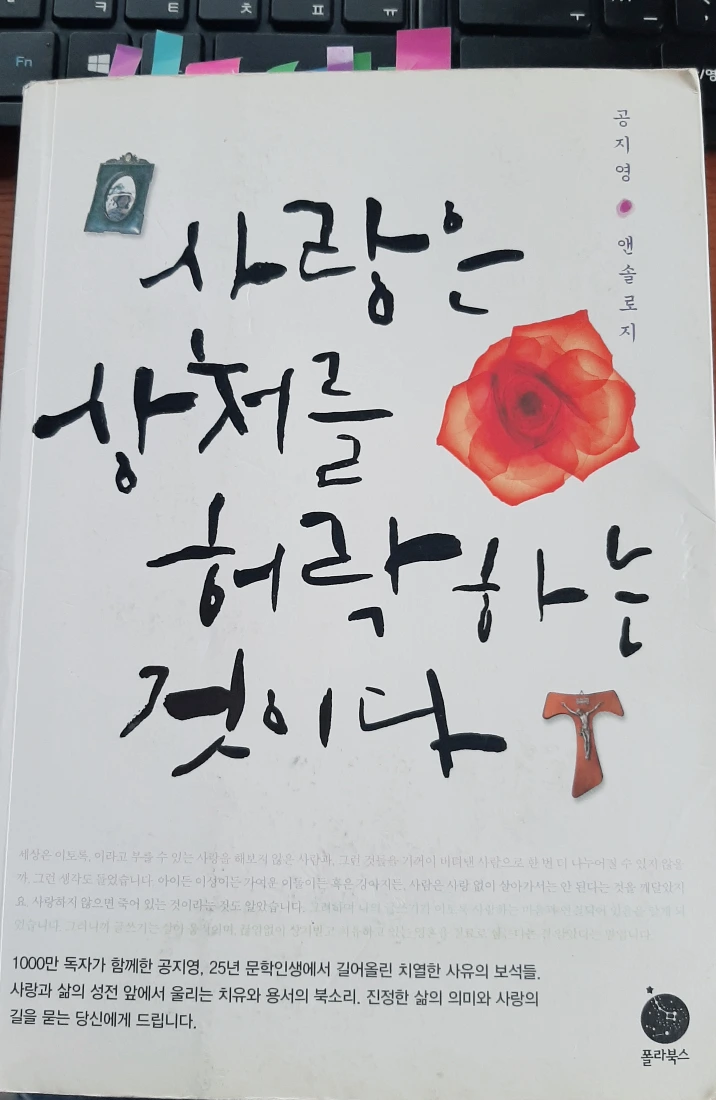 ㅋ
ㅌ
ㅊ
ㅍ
ㅠ
ㅜ
Fn
공지영 앤솔로지
사랑은
상처를
허락하는
것이다
세상은 이토록, 이라고 부를 수 있는 사랑을 해보지 않은 사람과, 그런 것들을 기꺼이 버텨낸 사람으로 한 번 더 나누어질 수 있지 않을
까, 그런 생각도 들었습니다. 아이든 이성이든 가여운 이들이든 혹은 강아지든, 사람은 사랑 없이 살아가서는 안 된다는 것을 깨달았지
요. 사랑하지 않으면 죽어 있는 것이라는 것도 알았습니다.
1000만 독자가 함께한 공지영, 25년 문학인생에서 길어올린 치열한 사유의 보석들.
사랑과 삶의 성전 앞에서 울리는 치유와 용서의 북소리. 진정한 삶의 의미와 사랑의
길을 묻는 당신에게 드립니다.
폴라북스